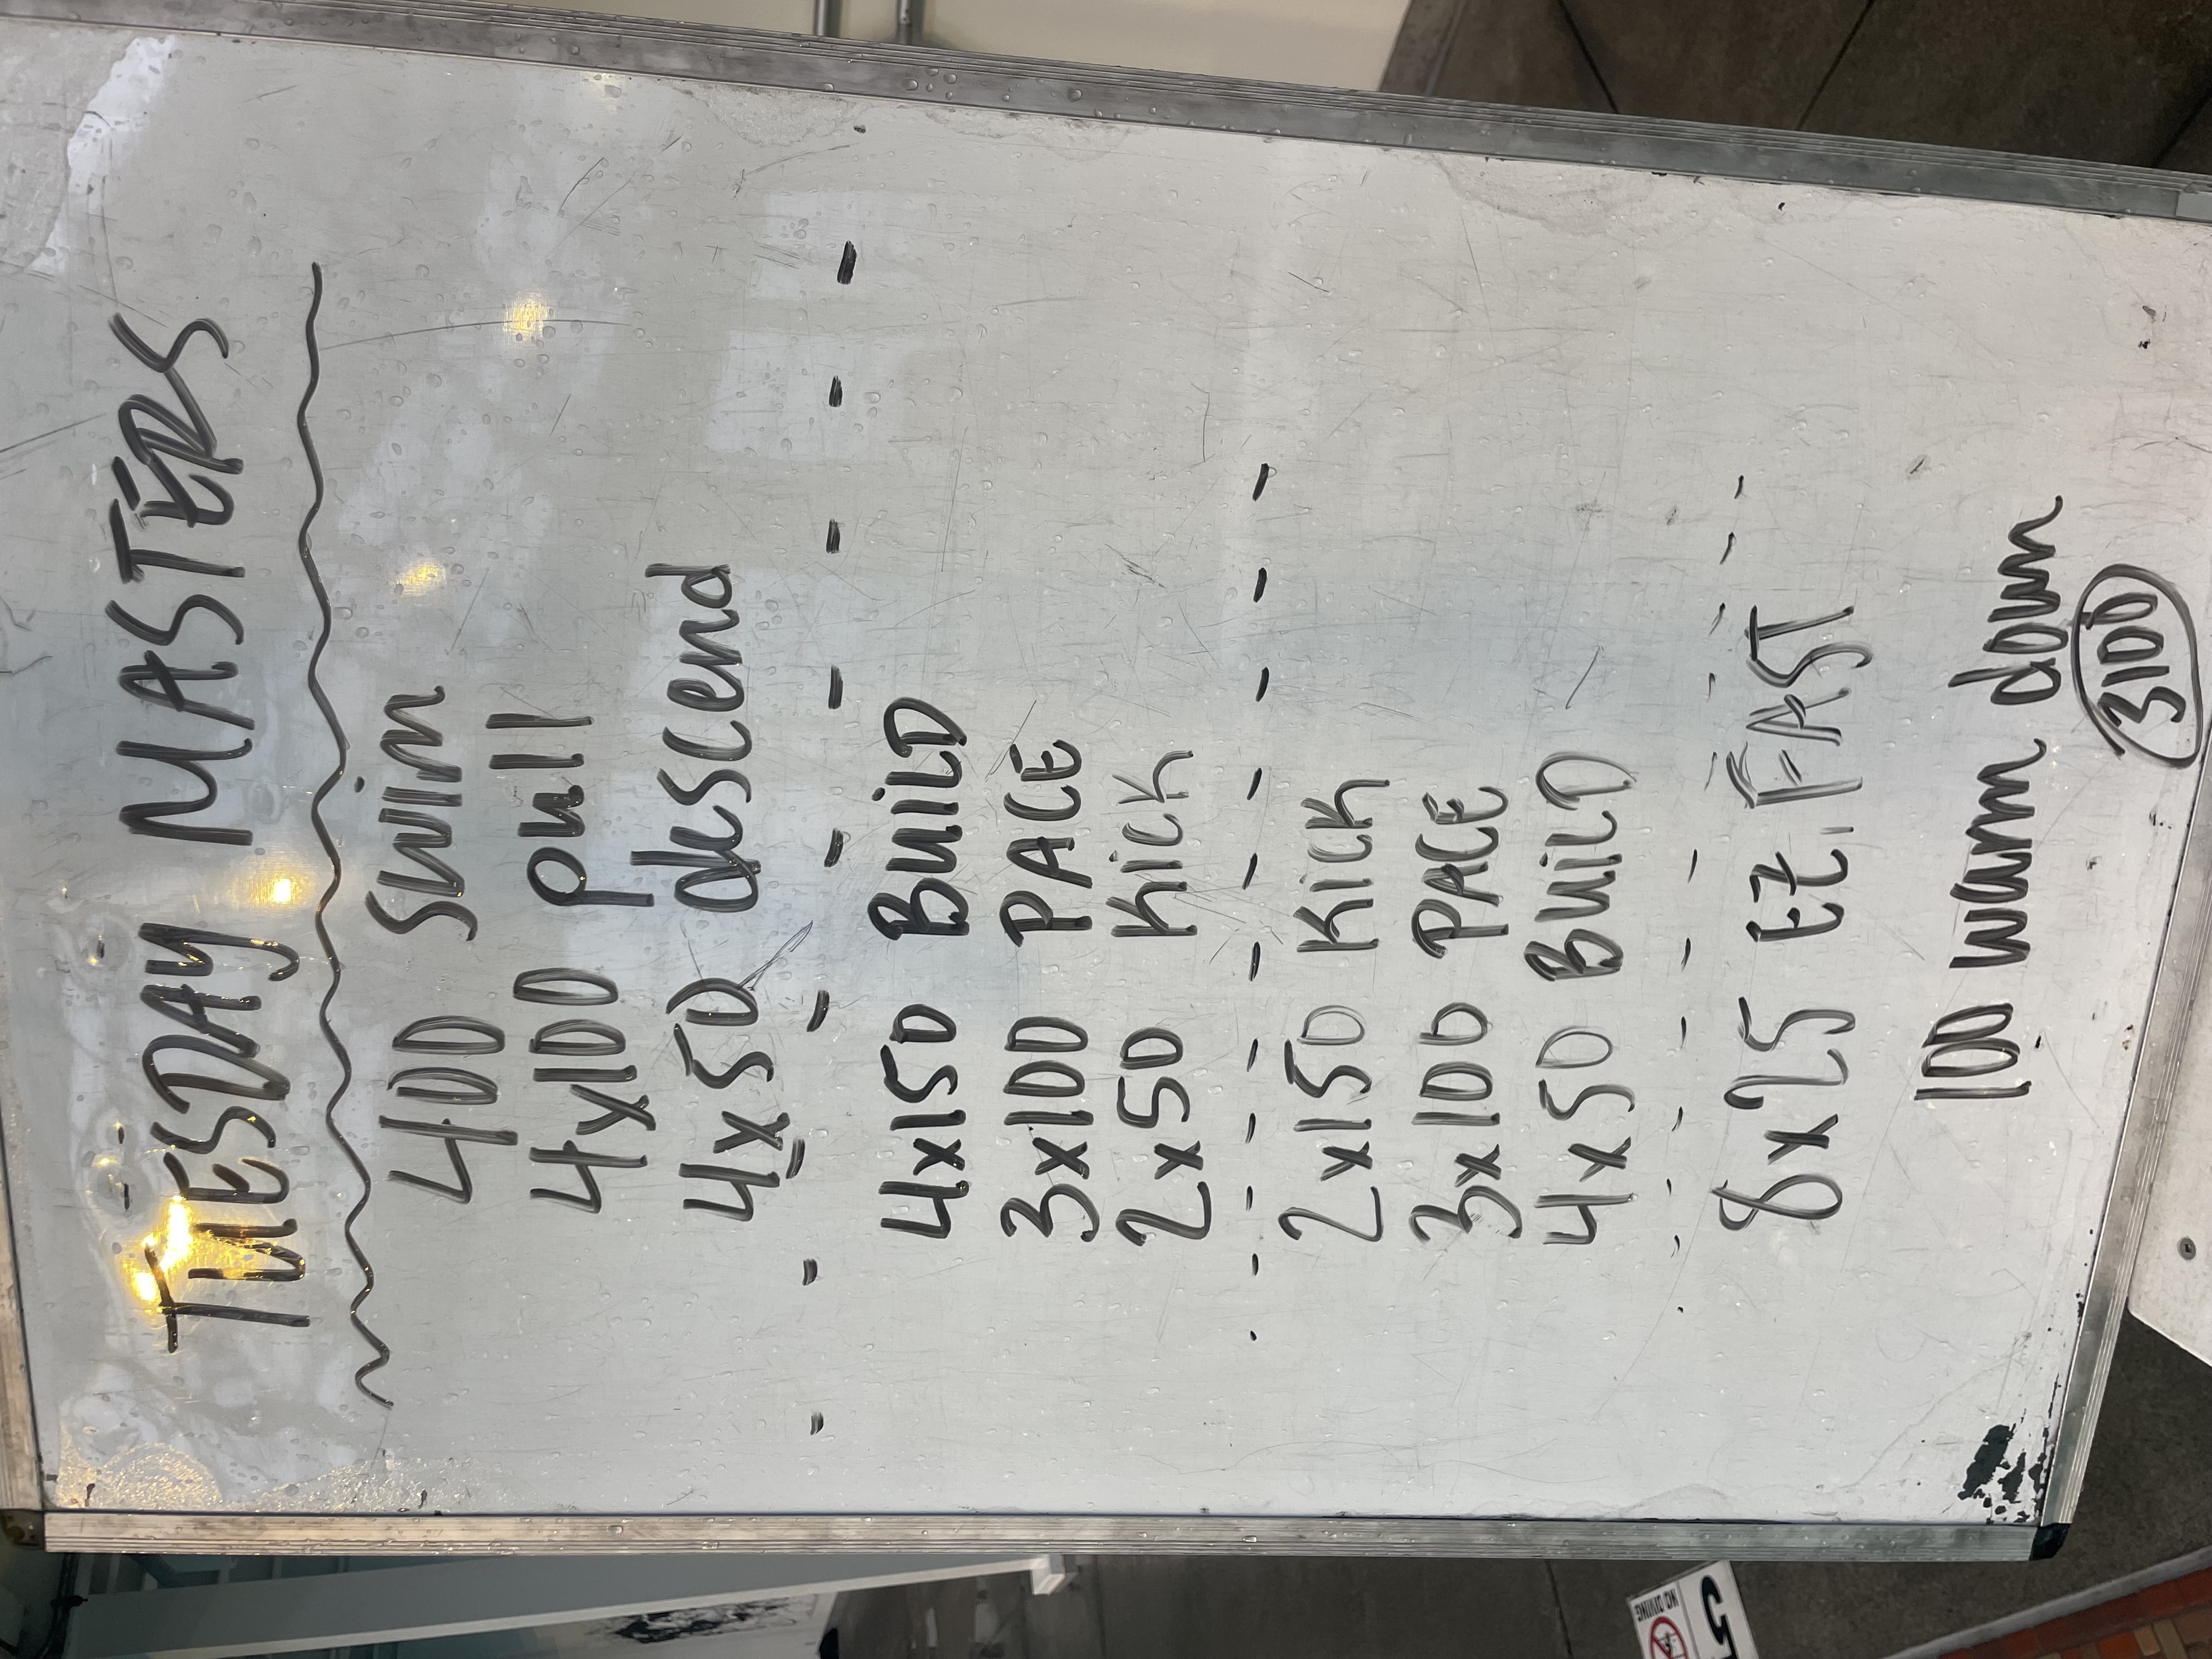 TUESDAY MASTERS
400 swim
4x100 pull
4x50 descend
4x150 BUILD
3x100 PACE
2x50 KICK
2x150 KICK
3x100 PACE
4x50 BUILD
8x25 EZ, FAST
100 warm down
3100
5
NO DIVING